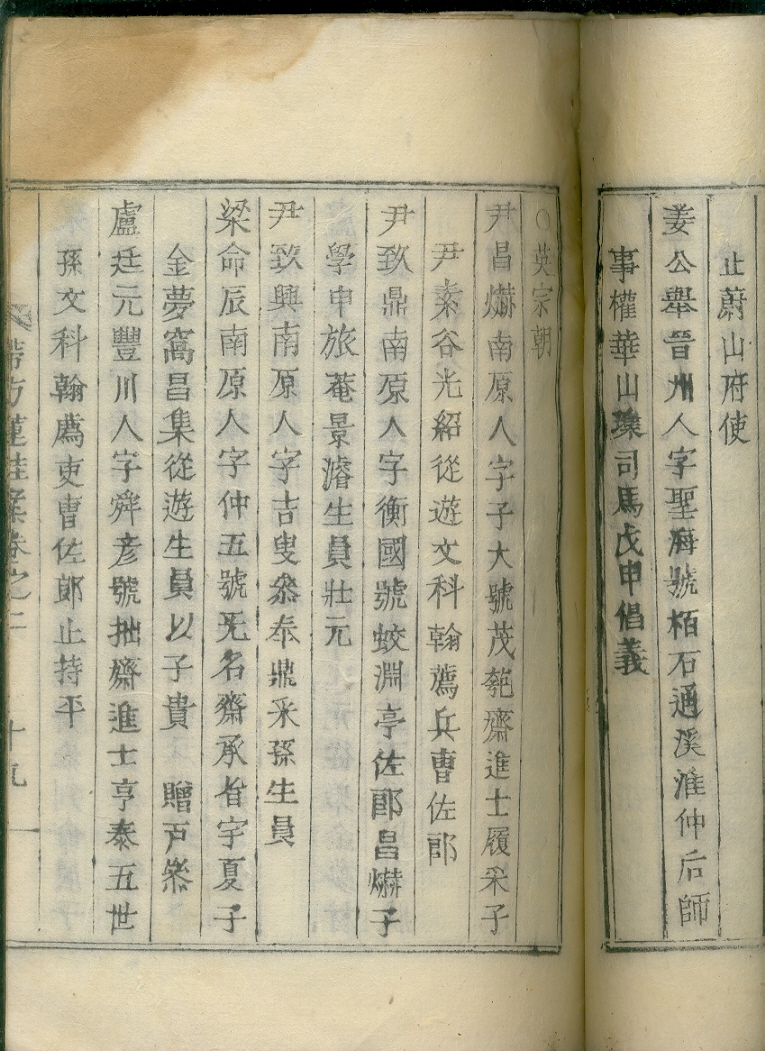 止蔚山府使
姜公舉晉州人字聖海號栢石通溪淮仲后師
事權華山璨司馬戊申倡義
○英宗朝
尹昌爀南原人字子大號茂匏齋進士履采子
尹素谷光紹從遊文科翰薦兵曹佐郎
尹致鼎南原人字衡國號蛟淵亭佐郎昌爀子
學申旅菴景濬生員壯元
尹致興南原人字吉叟叅奉鼎采孫生員
梁命辰南原人字仲五號旡名齋承旨宇夏子
金夢窩昌集從遊生員以子貴 贈戶叅
盧廷元豐川人字舜彦號拙齋進士亨泰五世
孫文科翰薦吏曹佐郎止持平
帶方蓮桂案卷之二 十九